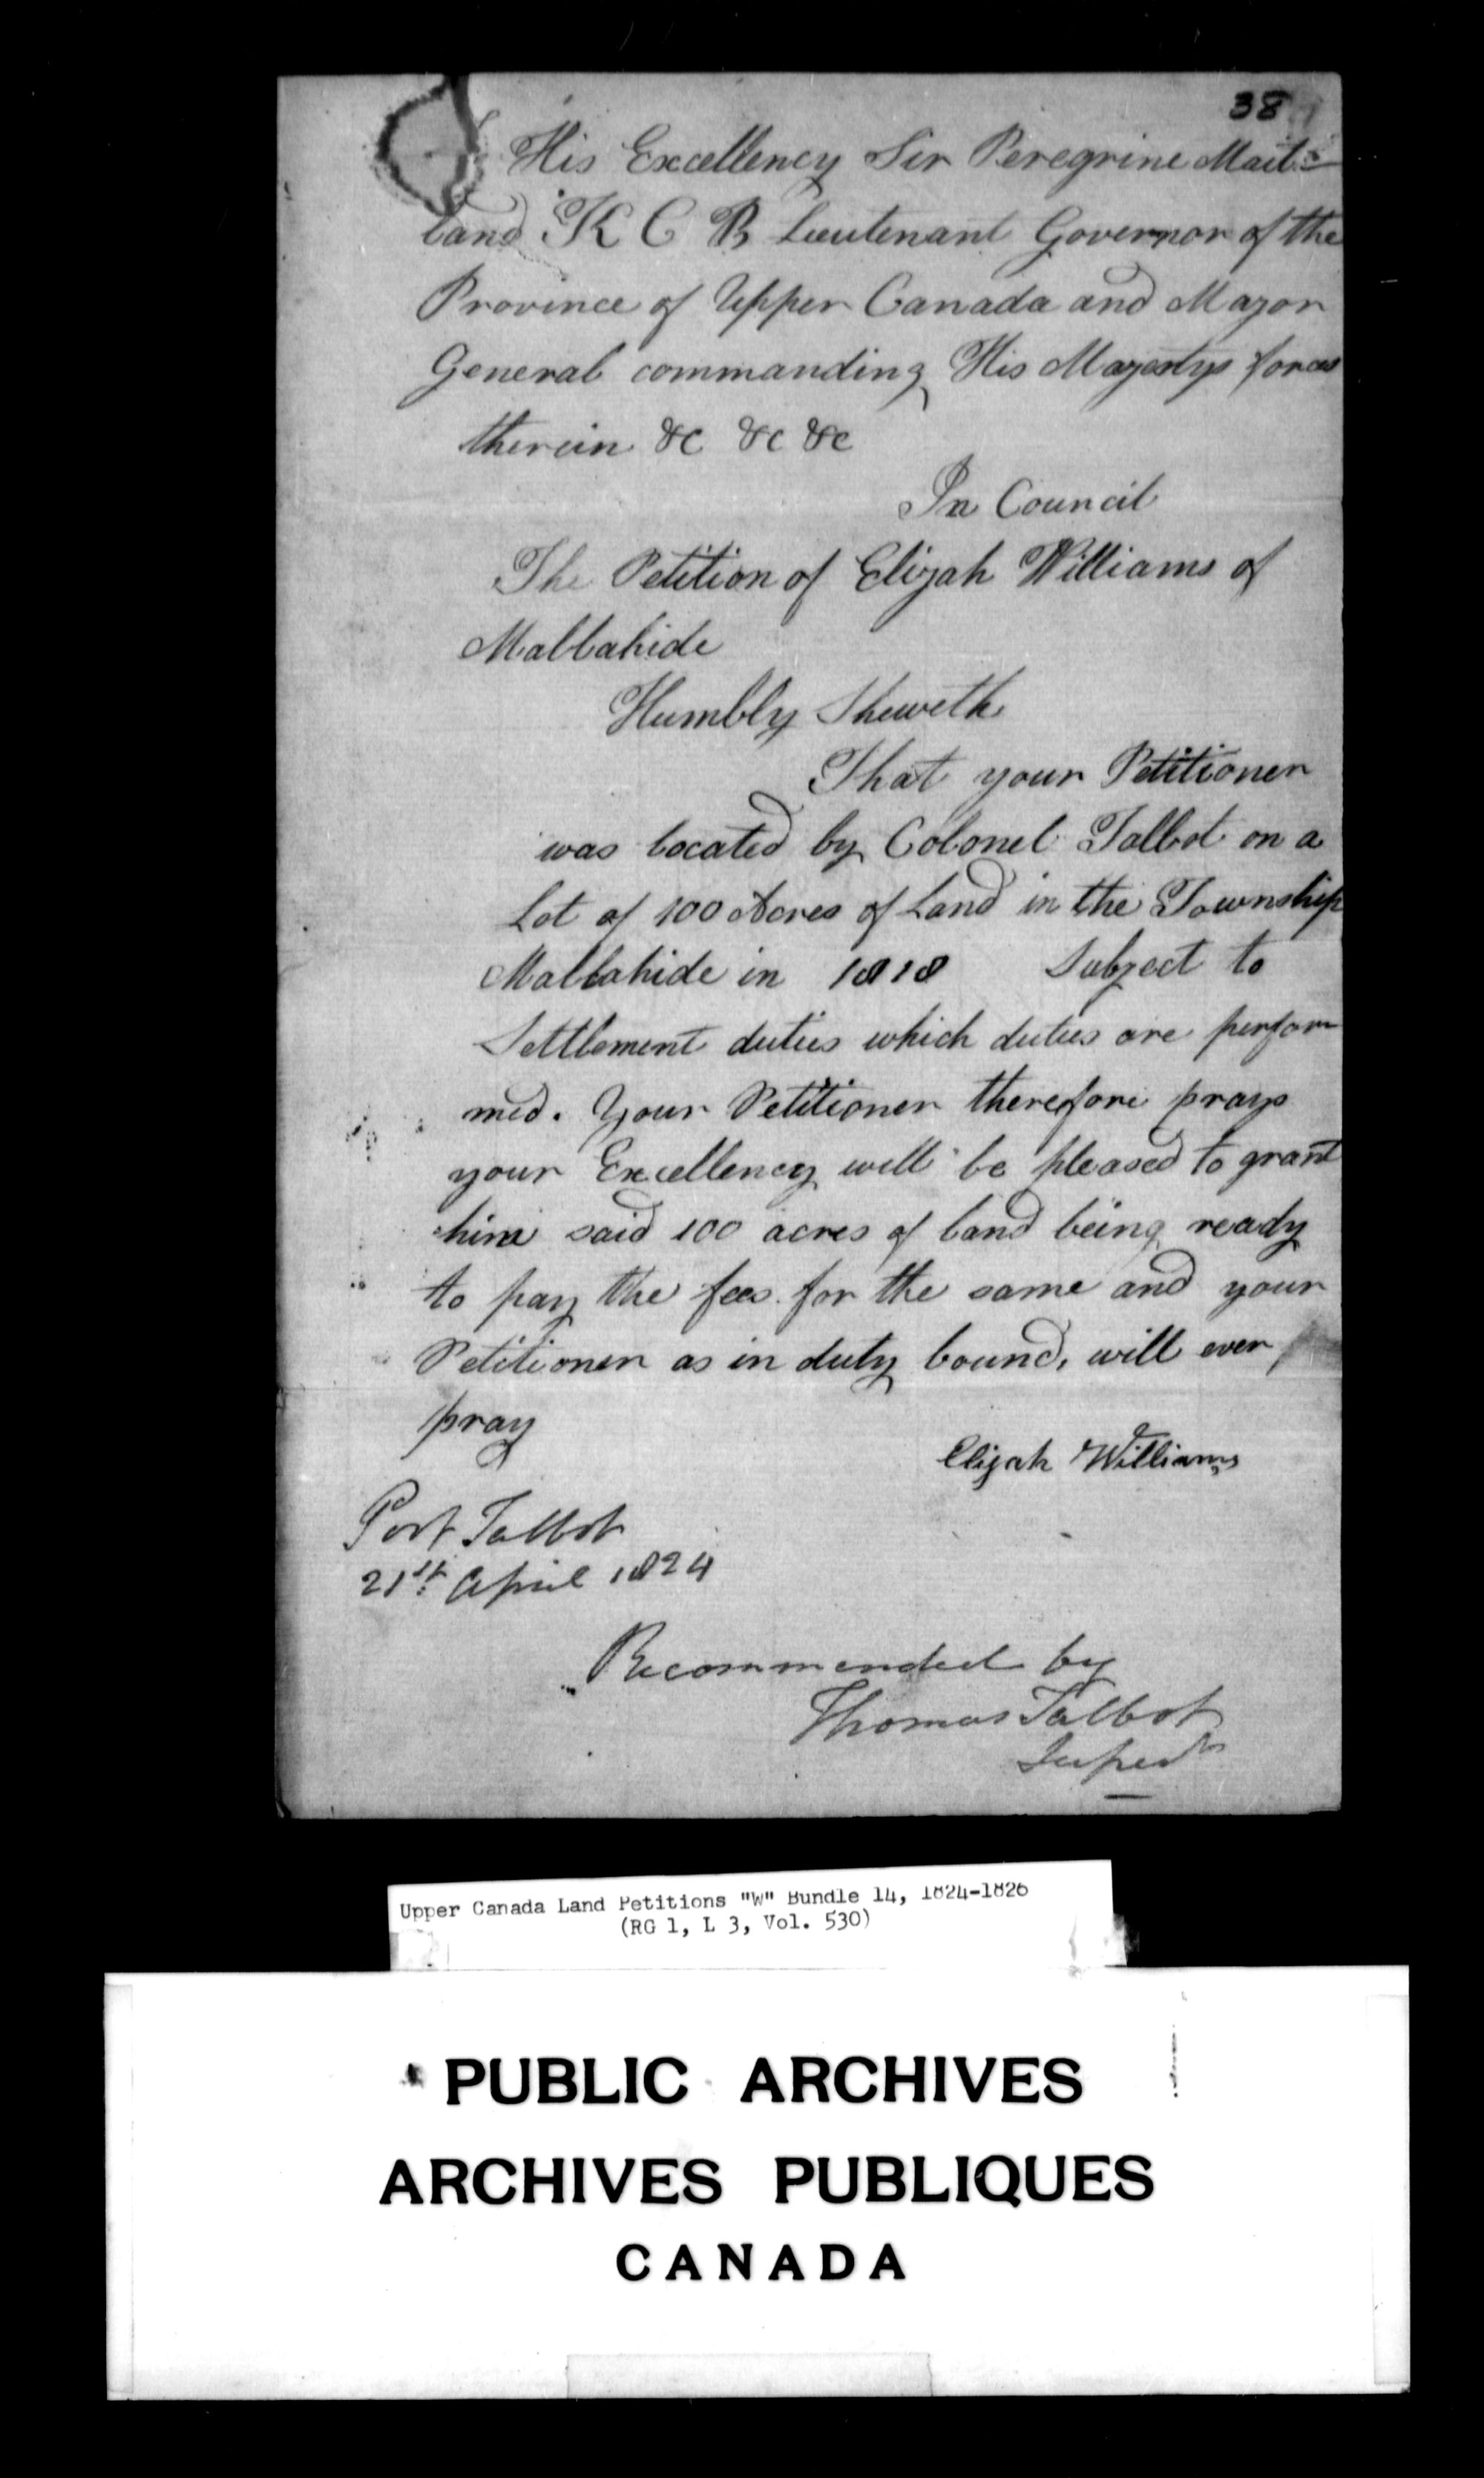 38
His Excellency Sir Peregrine Mait-
land K C B Lieutenant Governor of the
Province of Upper Canada and Major
General commanding His Majestys forces
therein &c &c &c
In Council
The Petition of Elijah Williams of
Mallahide
Humbly Sheweth
That your Petitioner
was located by Colonel Talbot on a
Lot of 100 Acres of Land in the Township
Mallahide in 1818 Subject to
Settlement duties which duties are perfor
med. Your Petitioner therefore prays
your Excellency will be pleased to grant
him said 100 acres of land being ready
to pay the fees for the same and your
Petitioner as in duty bound, will ever
pray
Elijah Williams
Port Talbot
21st April 1824
Recommended by
Thomas Talbot
Upper Canada Land Petitions "W" Bundle 14, 1824-1826
(RG 1, L 3, Vol. 530)
PUBLIC ARCHIVES
ARCHIVES PUBLIQUES
CANADA